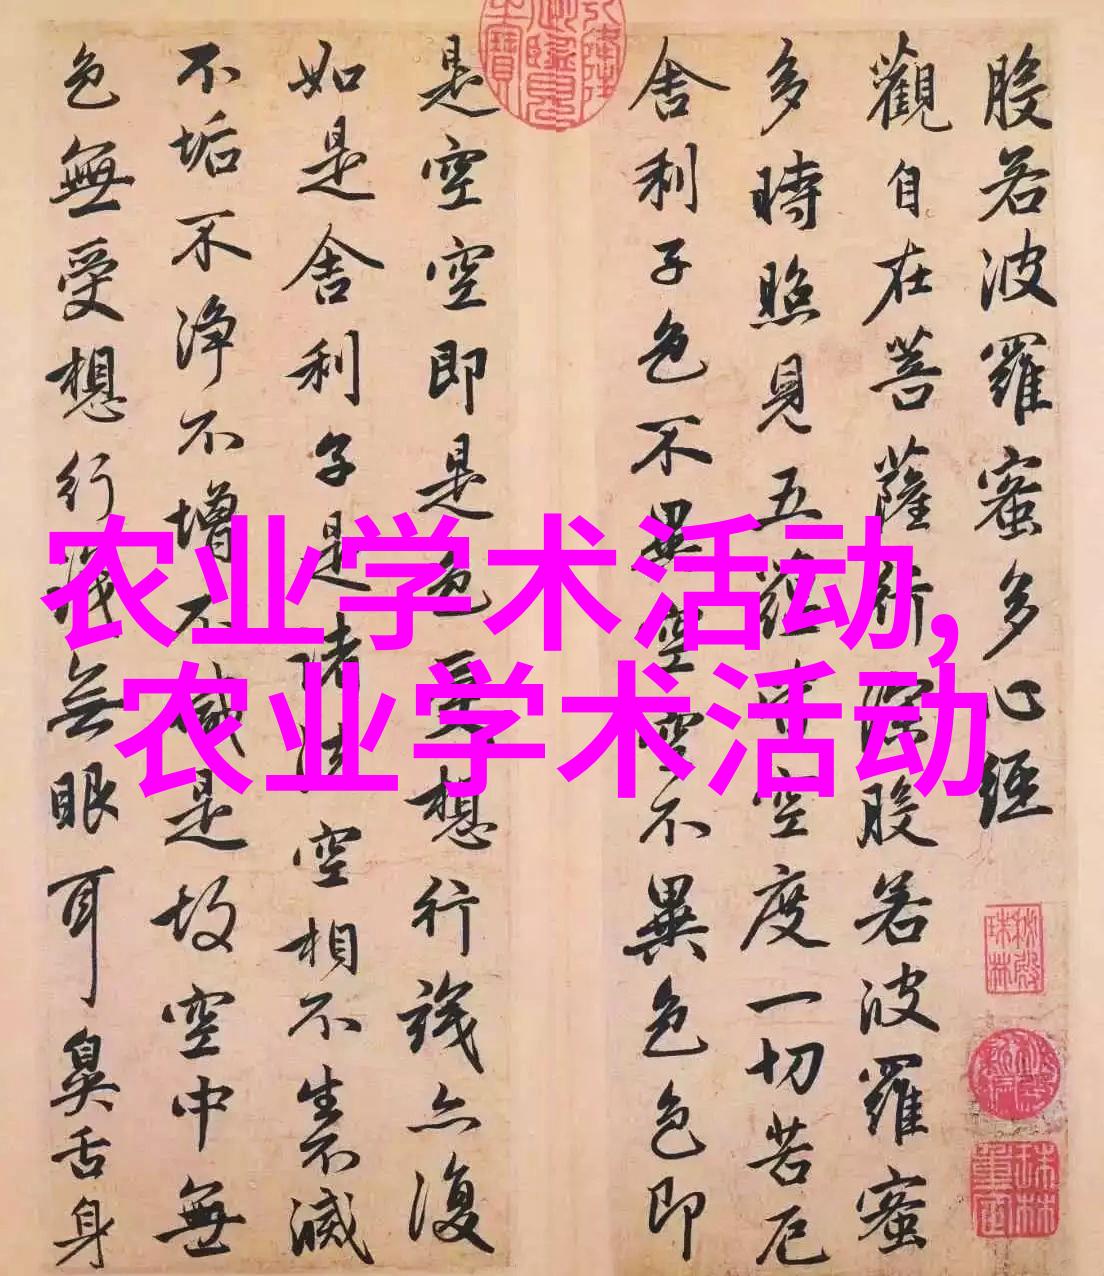 般若波羅蜜多心經
觀自在菩薩行深般若波羅蜜
多時照見五蘊皆空度一切苦厄
舍利子色不異空空不異色色即
是空空即是色受想行識亦復
如是舍利子是諸法空相不生不滅
不垢不淨不增不減是故空中無
色無受想行識无眼耳鼻舌身
农业学术活动,
农业学术活动